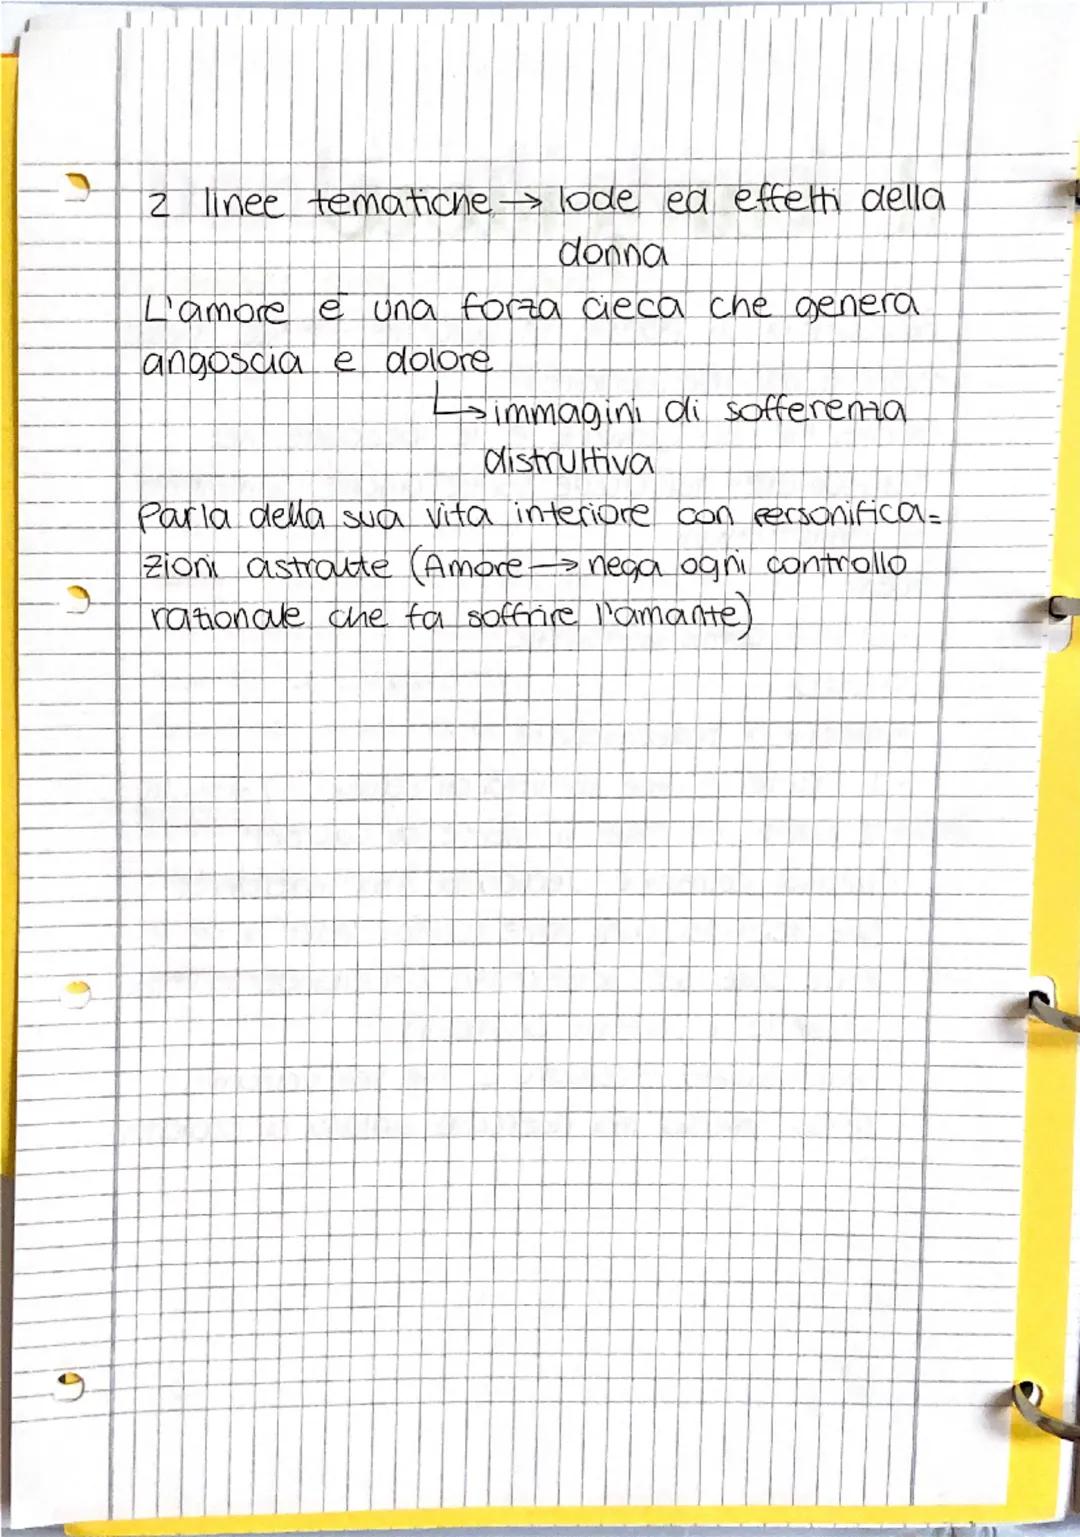 2 linee tematiche → lode ed effetti della
donna
L'amore è una forza cieca che genera
angoscia e dolore
↳ immagini di sofferenza
distruttiva
Parla della sua vita interiore con personifica=
zioni astratte (Amore → nega ogni controllo
razionale che fa soffrire l'amante)